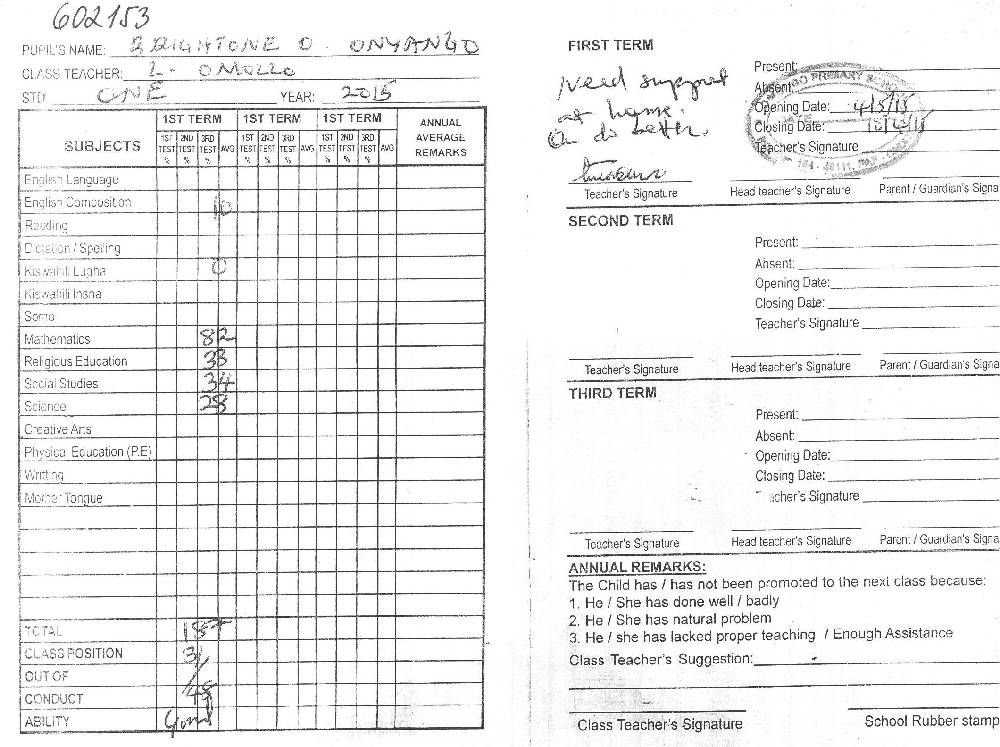 602153
PUPIL'S NAME: BRIGHTONE O. ONYANGO
CLASS TEACHER: L. OMOLLO
STD ONE YEAR: 2015
SUBJECTS 1ST TERM 1ST TERM 1ST TERM ANNUAL AVERAGE REMARKS
1ST TEST % 2ND TEST % 3RD TEST % AVG 1ST TEST % 2ND TEST % 3RD TEST % AVG 1ST TEST % 2ND TEST % 3RD TEST % AVG
English Language
English Composition 10
Reading
Dictation / Spelling
Kiswahili Lugha 0
Kiswahili Insha
Somo
Mathematics 82
Religious Education 33
Social Studies 34
Science 28
Creative Arts
Physical Education (P.E)
Writting
Mother Tongue
TOTAL 187
CLASS POSITION 31
OUT OF /48
CONDUCT
ABILITY Good
FIRST TERM
Need support
at home
to do better.
Present:
Absent:
Opening Date: 4/5/15
Closing Date:
Teacher's Signature
PRIMARY SCHOOL
Teacher's Signature Head teacher's Signature Parent / Guardian's Signa
SECOND TERM
Present:
Absent:
Opening Date:
Closing Date:
Teacher's Signature
Teacher's Signature Head teacher's Signature Parent / Guardian's Signa
THIRD TERM
Present:
Absent:
Opening Date:
Closing Date:
acher's Signature
Teacher's Signature Head teacher's Signature Parent / Guardian's Signa
ANNUAL REMARKS:
The Child has / has not been promoted to the next class because:
1. He / She has done well / badly
2. He / She has natural problem
3. He / she has lacked proper teaching / Enough Assistance
Class Teacher's Suggestion:
Class Teacher's Signature School Rubber stamp